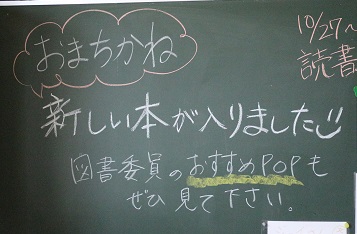 おまちかね
10/27~
読書
新しい本が入りました
図書委員のおすすめPOPも
ぜひ見て下さい。